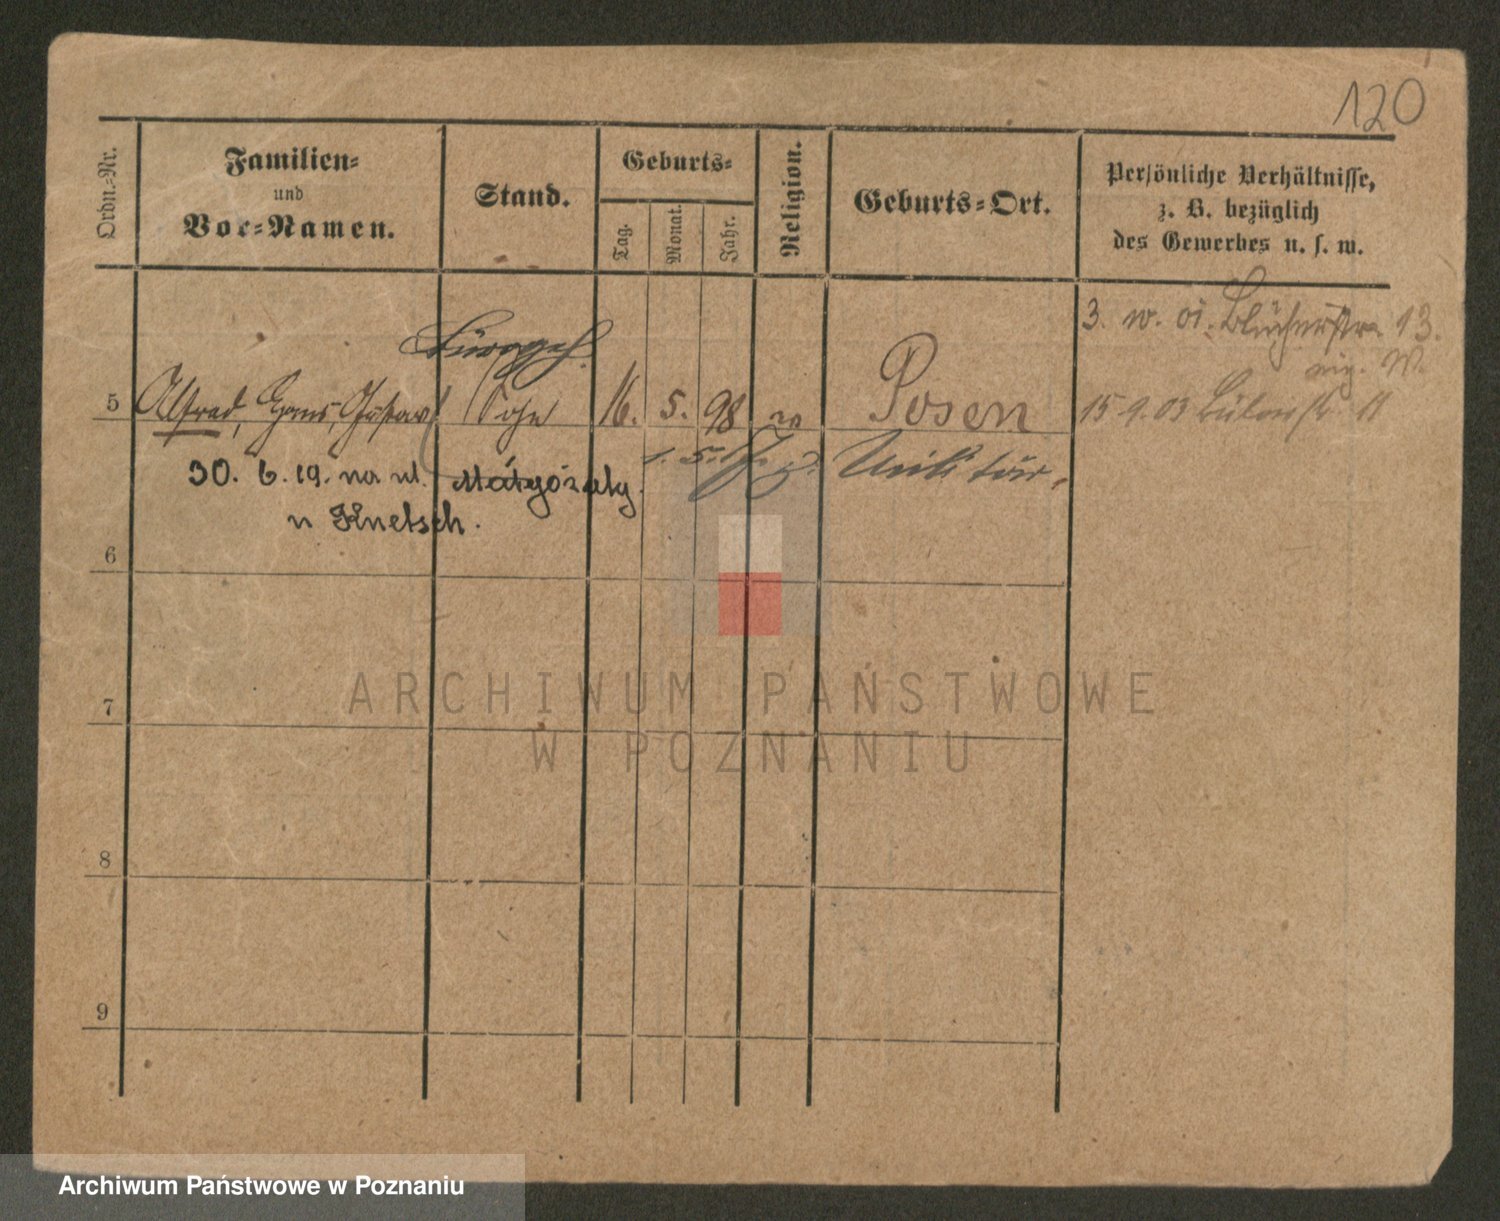 120
Ordn.-Nr.
Familien-
und
Vor-Namen.
Stand.
Geburts-
Tag.
Monat.
Jahr.
Religion.
Geburts-Ort.
Persönliche Verhältnisse,
z. B. bezüglich
des Gewerbes u. s. w.
3. 01. Blücherstr. 13.
5 Alfred, Hans, Gustav Sohn 16. 5. 98 ev Posen
15 9. 03 Bülowstr. 11
1. 5. Militär.
30. 6. 19. na ul. Małgorzaty
u Knetsch.
6
7
8
9
ARCHIWUM PAŃSTWOWE
W POZNANIU
Archiwum Państwowe w Poznaniu